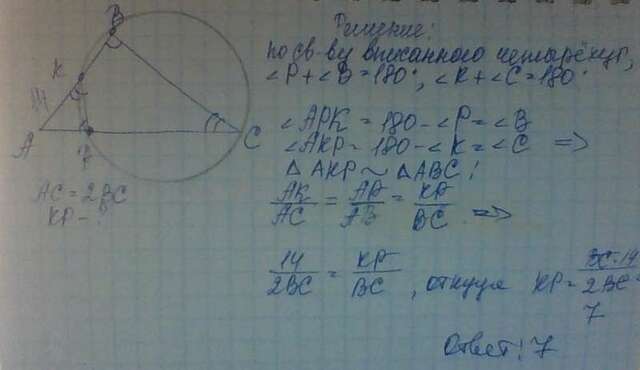 B
K
14
A
P
C
AC = 2BC
KP -
Решение:
по св-ву вписанного четырёхуг,
∠P + ∠B = 180°, ∠K + ∠C = 180°
∠APK = 180 - ∠P = ∠B
∠AKP = 180 - ∠K = ∠C ⟹
△AKP ~ △ABC !
AK/AC = AP/AB = KP/BC ⟹
14/2BC = KP/BC, откуда KP = BC·14/2BC =
7
Ответ: 7